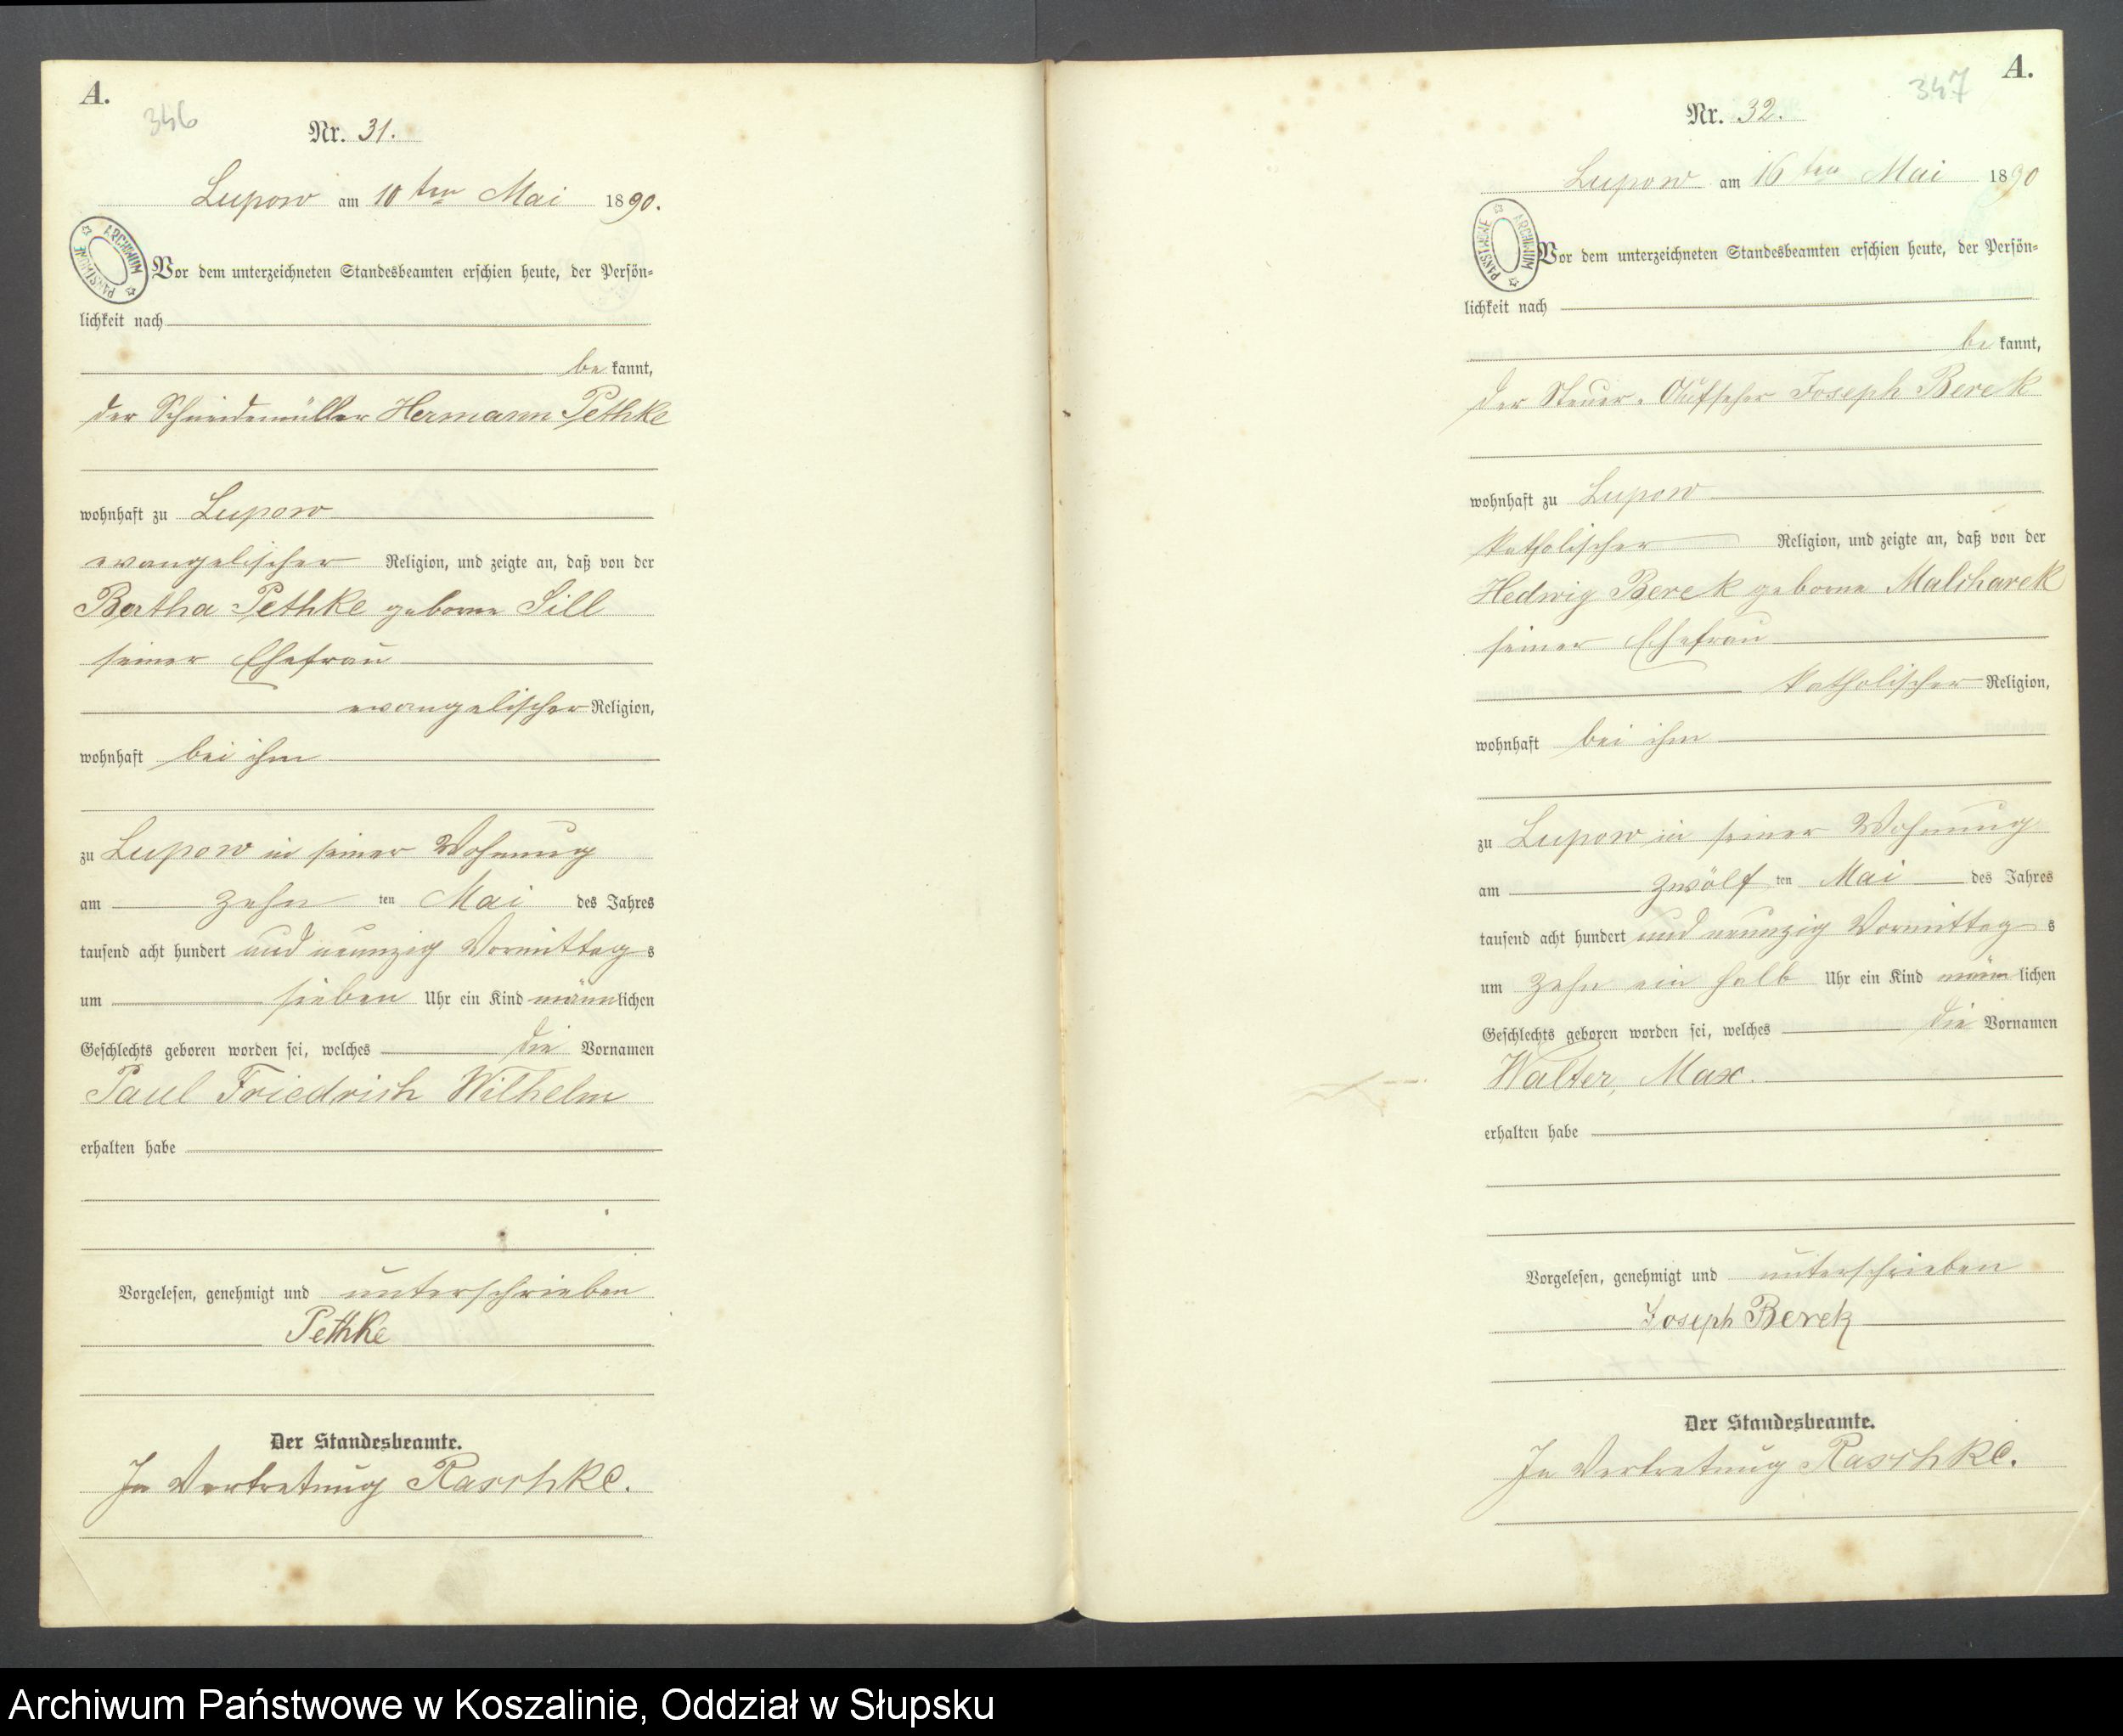 A.
346
Nr. 31.
Lupow am 10ten Mai 1890.
ARCHIWUM PAŃSTWOWE
Vor dem unterzeichneten Standesbeamten erschien heute, der Persön=
lichkeit nach
be kannt,
der Schneidemüller Hermann Pethke
wohnhaft zu Lupow
evangelischer Religion, und zeigte an, daß von der
Bertha Pethke geborne Sill
seiner Ehefrau
evangelischer Religion,
wohnhaft bei ihm
zu Lupow in seiner Wohnung
am zehn ten Mai des Jahres
tausend acht hundert und neunzig Vormittag s
um sieben Uhr ein Kind männlichen
Geschlechts geboren worden sei, welches die Vornamen
Paul Friedrich Wilhelm
erhalten habe
Vorgelesen, genehmigt und unterschrieben
Pethke
Der Standesbeamte.
In Vertretung Raschke.
A.
347
Nr. 32.
Lupow am 16ten Mai 1890
ARCHIWUM PAŃSTWOWE
Vor dem unterzeichneten Standesbeamten erschien heute, der Persön=
lichkeit nach
be kannt,
der Steuer-Aufseher Joseph Berek
wohnhaft zu Lupow
katholischer Religion, und zeigte an, daß von der
Hedwig Berek geborne Malcharek
seiner Ehefrau
katholischer Religion,
wohnhaft bei ihm
zu Lupow in seiner Wohnung
am zwölf ten Mai des Jahres
tausend acht hundert und neunzig Vormittag s
um zehn ein halb Uhr ein Kind männ lichen
Geschlechts geboren worden sei, welches die Vornamen
Walter, Max.
erhalten habe
Vorgelesen, genehmigt und unterschrieben
Joseph Berek
Der Standesbeamte.
In Vertretung Raschke.
Archiwum Państwowe w Koszalinie, Oddział w Słupsku